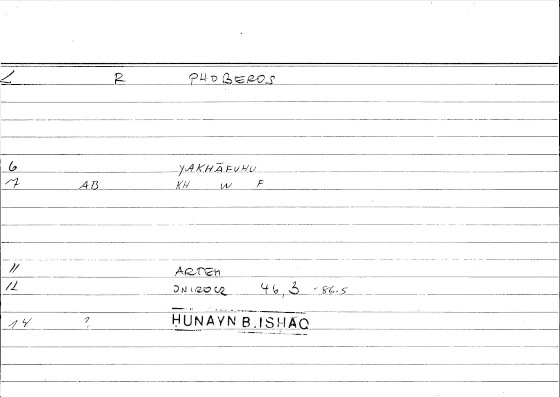 L R PHOBEROS
6 YAKHĀFUHU
7 AB KH W F
11 ARTEM
12 ONIROCR 46,3 -86.5
14 ? HUNAYN B.ISHAQ